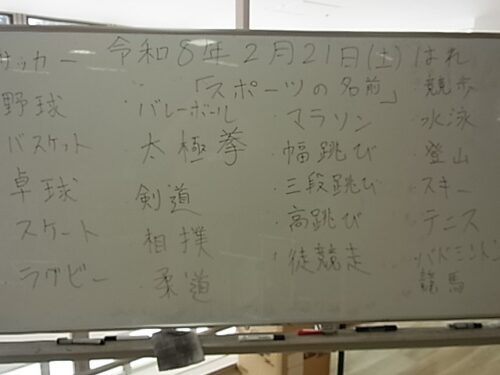 令和8年2月21日(土)はれ
「スポーツの名前」
サッカー
野球
バスケット
卓球
スケート
ラグビー
・バレーボール
太極拳
剣道
相撲
・柔道
・マラソン
・幅跳び
・三段跳び
・高跳び
・徒競走
・競歩
・水泳
・登山
・スキー
・テニス
・バドミントン
競馬